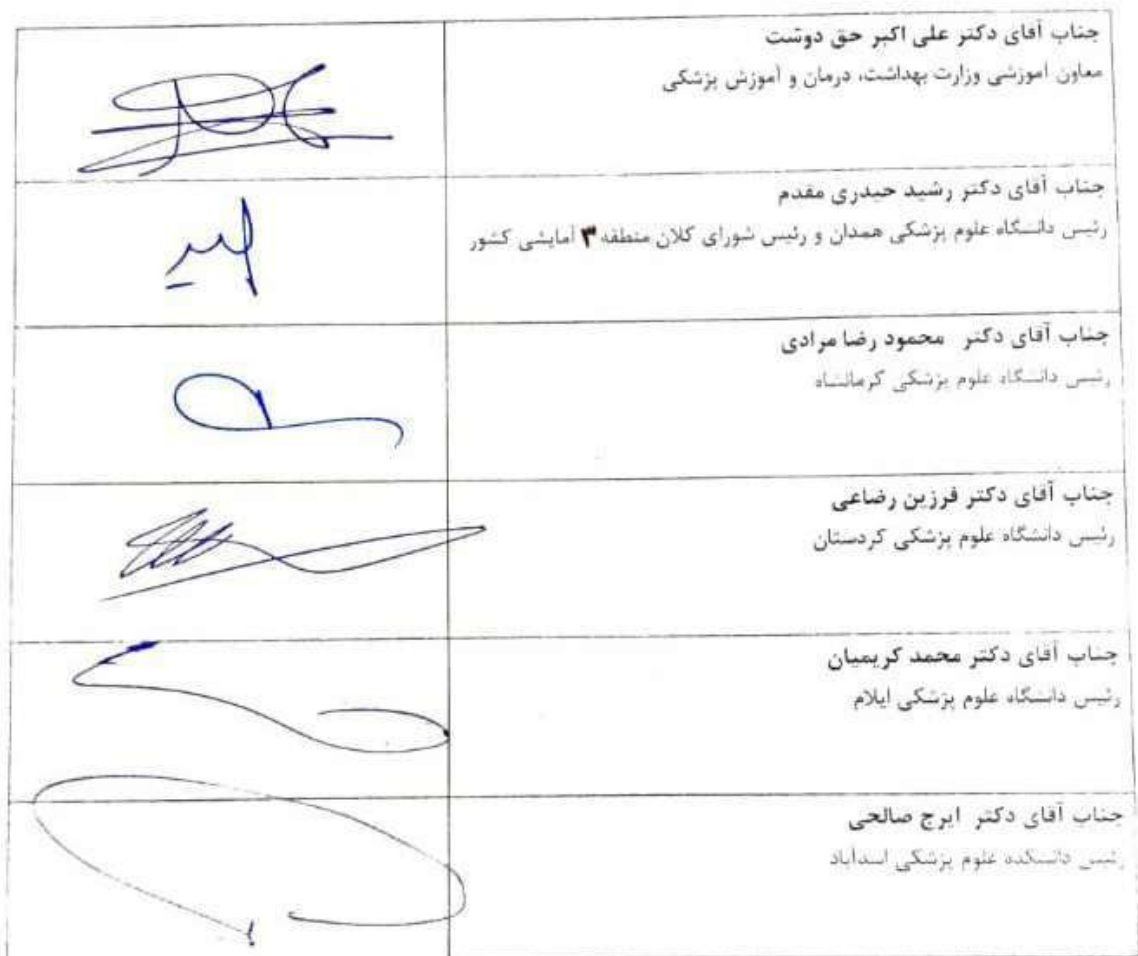 جناب آقای دکتر علی اکبر حق دوست
معاون آموزشی وزارت بهداشت، درمان و آموزش پزشکی
جناب آقای دکتر رشید حیدری مقدم
رئیس دانشگاه علوم پزشکی همدان و رئیس شورای کلان منطقه ۳ آمایشی کشور
جناب آقای دکتر محمود رضا مرادی
رئیس دانشگاه علوم پزشکی کرمانشاه
جناب آقای دکتر فرزین رضاعی
رئیس دانشگاه علوم پزشکی کردستان
جناب آقای دکتر محمد کریمیان
رئیس دانشگاه علوم پزشکی ایلام
جناب آقای دکتر ایرج صالحی
رئیس دانشکده علوم پزشکی اسدآباد